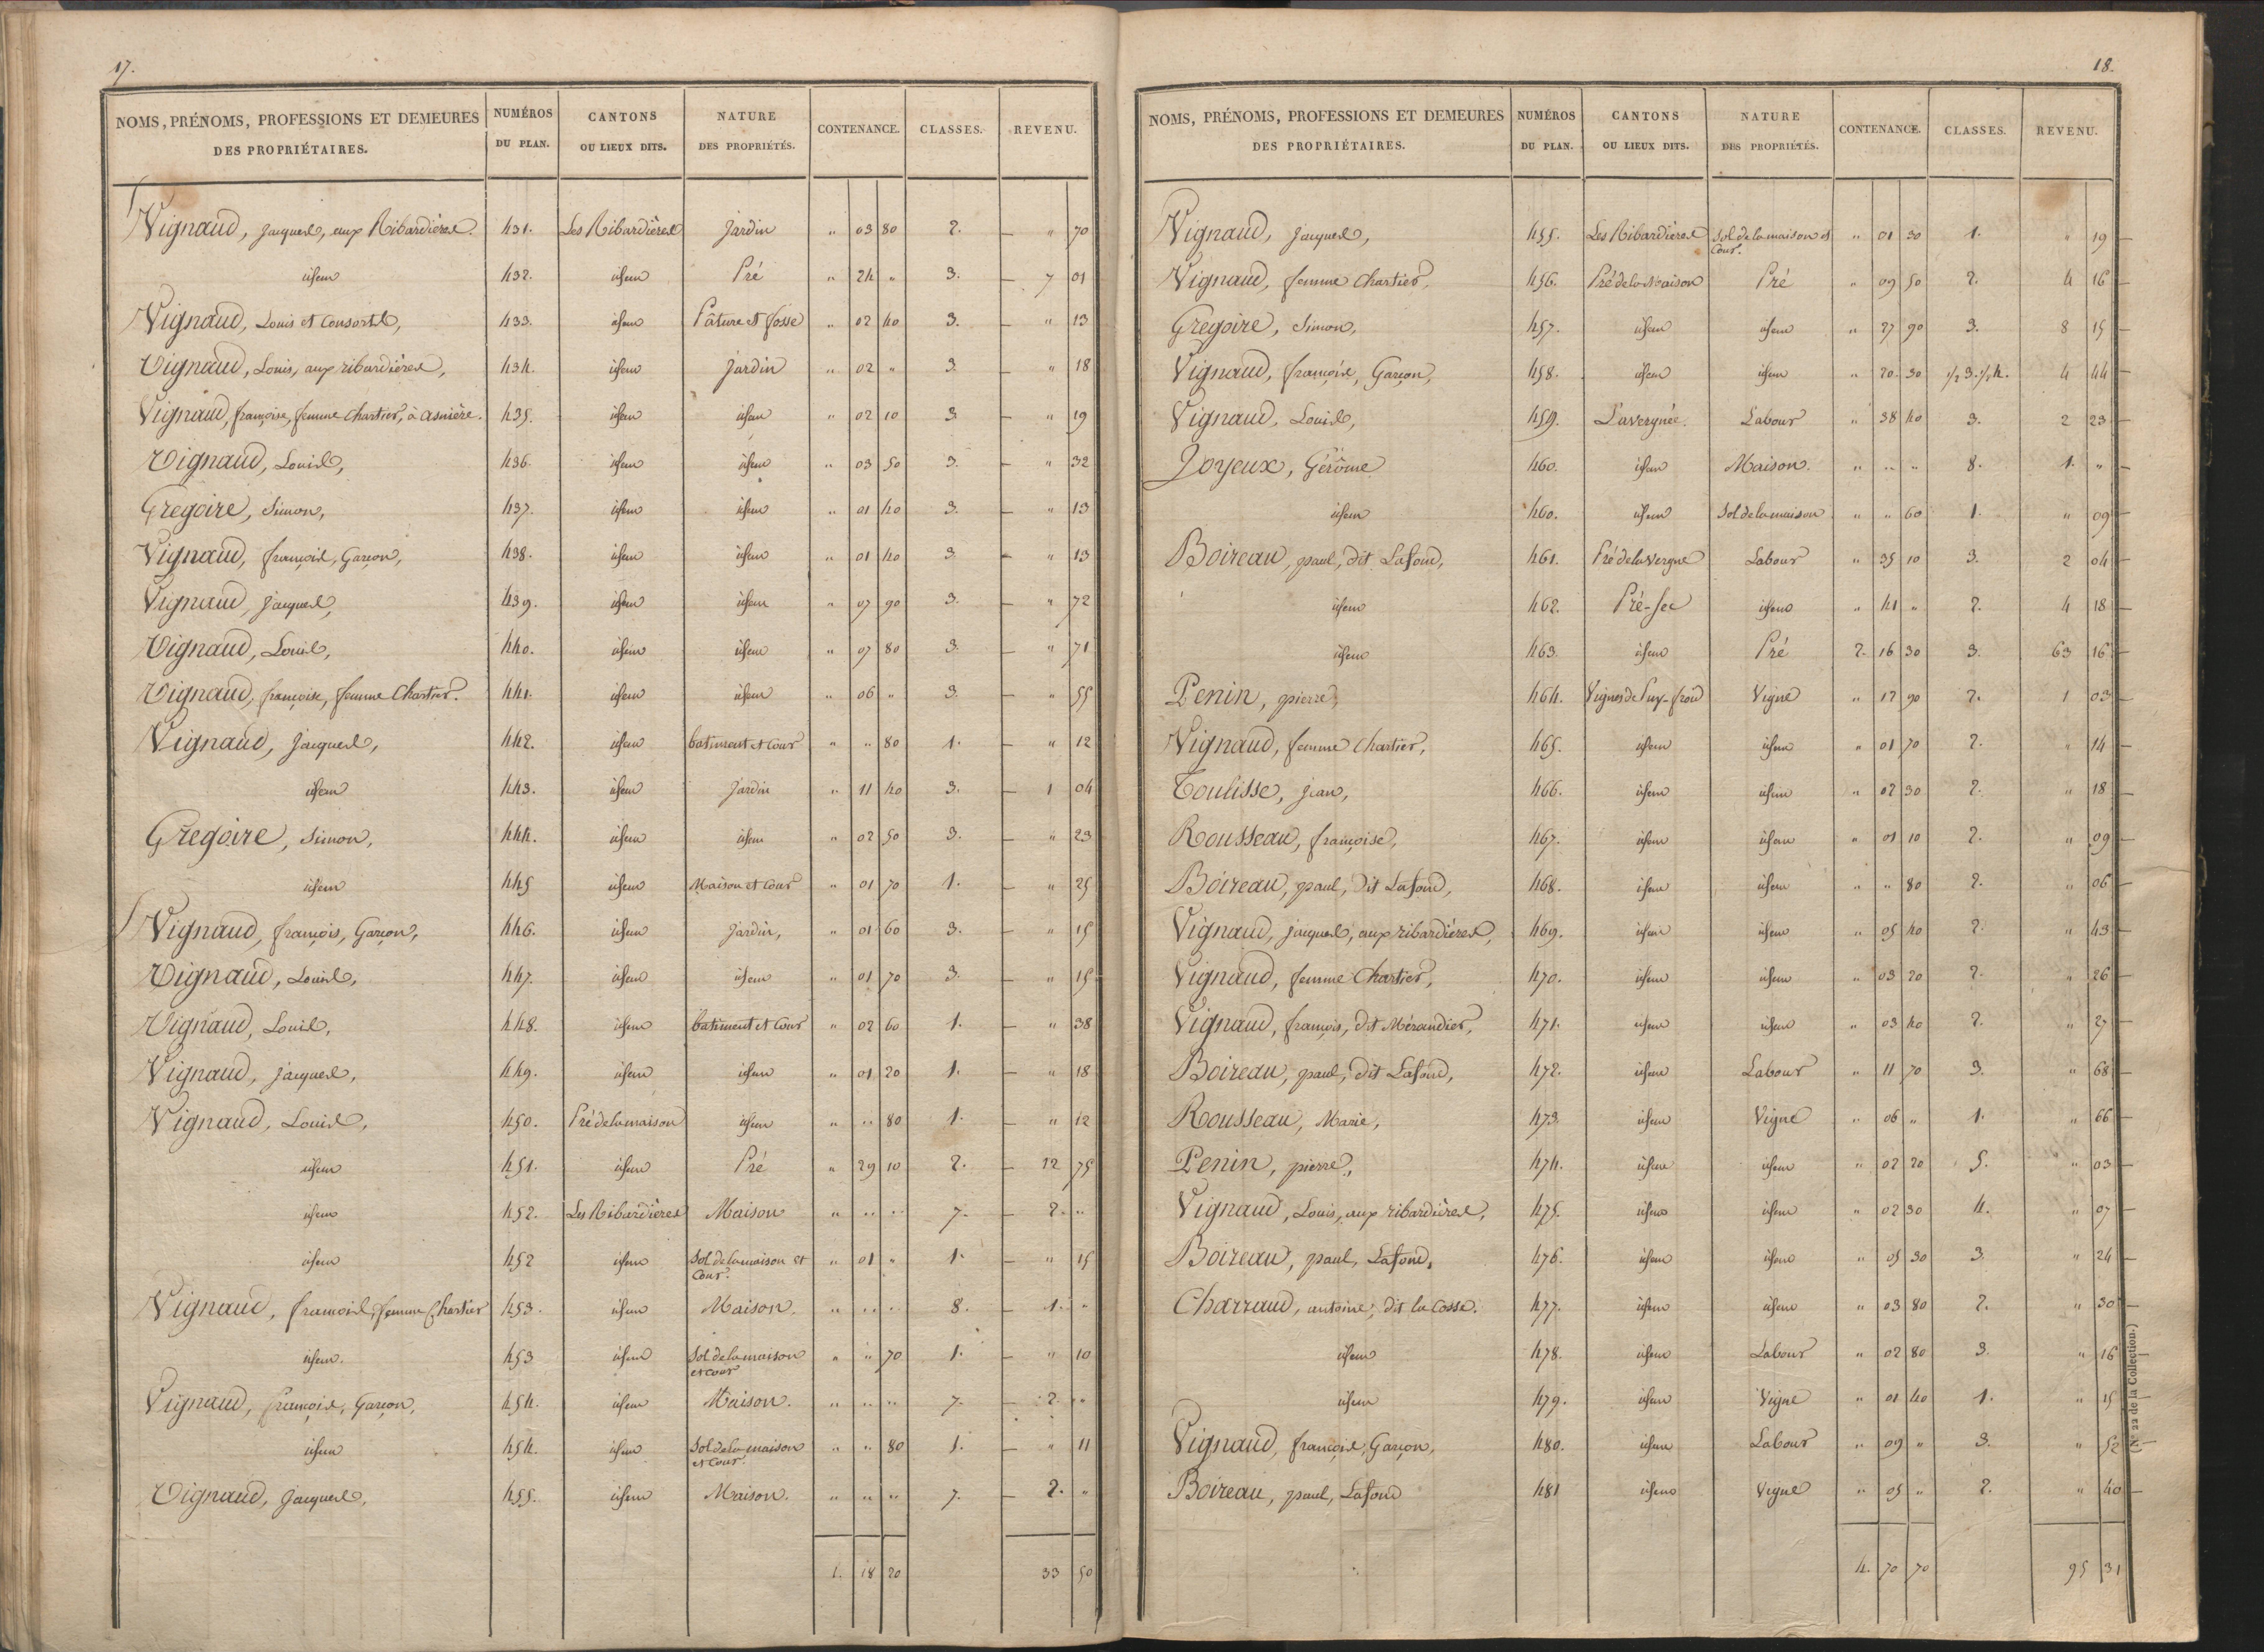 17.
NOMS, PRÉNOMS, PROFESSIONS ET DEMEURES DES PROPRIÉTAIRES. NUMÉROS DU PLAN. CANTONS OU LIEUX DITS. NATURE DES PROPRIÉTÉS. CONTENANCE. CLASSES. REVENU.
Vignaud, Jacques, aux Ribardières. 431. Les Ribardières Jardin " 03 80 2. — " 70
idem 432. idem Pré " 24 " 3. — 7 01
Vignaud, Louis et Consorts, 433. idem Pâture et fosse " 02 40 3. — " 13
Vignaud, Louis, aux ribardières, 434. idem Jardin " 02 " 3. — " 18
Vignaud, françoise, femme Chartier, à asnière. 435. idem idem " 02 10 3 — " 19
Vignaud, Louis, 436. idem idem " 03 50 3. — " 32
Gregoire, Simon, 437. idem idem " 01 40 3. — " 13
Vignaud, françois, Garçon, 438. idem idem " 01 40 3. — " 13
Vignaud, Jacques, 439. idem idem " 07 90 3. — " 72
Vignaud, Louis, 440. idem idem " 07 80 3. — " 71
Vignaud, françoise, femme Chartier. 441. idem idem " 06 " 3. — " 55
Vignaud, Jacques, 442. idem batiment et Cour " " 80 1. — " 12
idem 443. idem Jardin " 11 40 3. — 1 04
Gregoire, Simon, 444. idem idem " 02 50 3. — " 23
idem 445 idem Maison et Cour " 01 70 1. — " 25
Vignaud, françois, Garçon, 446. idem Jardin, " 01 60 3. — " 15
Vignaud, Louis, 447. idem idem " 01 70 3. — " 15
Vignaud, Louis, 448. idem batiment et Cour " 02 60 1. — " 38
Vignaud, Jacques, 449. idem idem " 01 20 1. — " 18
Vignaud, Louis, 450. Pré de la maison idem " " 80 1. — " 12
idem 451. idem Pré " 29 10 2. — 12 75
idem 452. Les Ribardières Maison " " " 7. — 2. "
idem 452 idem Sol de la maison et Cour. " 01 " 1. — " 15
Vignaud, françoise, femme Chartier 453. idem Maison. " " " 8. — 1. "
idem. 453 idem Sol de la maison et cour " " 70 1. — " 10
Vignaud, françois, Garçon, 454. idem Maison. " " " 7. — 2. "
idem 454. idem Sol de la maison et Cour. " " 80 1. — " 11
Vignaud, Jacques, 455. idem Maison. " " " 7. — 2. "
1. 18 20 33 50
18.
NOMS, PRÉNOMS, PROFESSIONS ET DEMEURES DES PROPRIÉTAIRES. NUMÉROS DU PLAN. CANTONS OU LIEUX DITS. NATURE DES PROPRIÉTÉS. CONTENANCE. CLASSES. REVENU.
Vignaud, Jacques, 455. Les Ribardières Sol de la maison et Cour. " 01 30 1. " 19 —
Vignaud, femme Chartier, 456. Pré de la Maison Pré " 09 50 2. 4 16 —
Gregoire, Simon, 457. idem idem " 27 90 3. 8 15 —
Vignaud, françois, Garçon, 458. idem idem " 20 30 1/2 3. 1/2 4. 4 44 —
Vignaud, Louis, 459. L'avergnée. Labour " 38 40 3. 2 23 —
Joyeux, Gérôme 460. idem Maison. " " " 8. 1. " —
idem 460. idem Sol de la maison " " 60 1. " 09 —
Boireau, paul, dit Lafond, 461. Pré de la Vergne Labour " 35 10 3. 2 04 —
idem 462. Pré-Sec idem " 41 " 2. 4 18 —
idem 463. idem Pré 2. 16 30 3. 63 16 —
Penin, pierre, 464. Vignes de Puy-froid Vigne " 12 90 2. 1 03 —
Vignaud, femme Chartier, 465. idem idem " 01 70 2. " 14 —
Toulisse, Jean, 466. idem idem " 02 30 2. " 18 —
Rousseau, françoise, 467. idem idem " 01 10 2. " 09 —
Boireau, paul, dit Lafond, 468. idem idem " " 80 2. " 06 —
Vignaud, Jacques, aux ribardières, 469. idem idem " 05 40 2. " 43 —
Vignaud, femme Chartier, 470. idem idem " 03 20 2. " 26 —
Vignaud, françois, dit Mérandier, 471. idem idem " 03 40 2. " 27 —
Boireau, paul, dit Lafond, 472. idem Labour " 11 70 3. " 68 —
Rousseau, Marie, 473. idem Vigne " 06 " 1. " 66 —
Penin, pierre, 474. idem idem " 02 20 5. " 03 —
Vignaud, Louis, aux ribardières, 475. idem idem " 02 30 4. " 07 —
Boireau, paul, Lafond, 476. idem idem " 05 30 3. " 24 —
Charraud, antoine, dit la Cosse. 477. idem idem " 03 80 2. " 30 —
idem 478. idem Labour " 02 80 3. " 16 —
idem 479. idem Vigne " 01 40 1. " 15 —
Vignaud, françois, Garçon, 480. idem Labour " 09 " 3. " 52 —
Boireau, paul, Lafond 481 idem Vigne " 05 " 2. " 40 —
4. 70 70 95 31
(N° 22 de la Collection.)